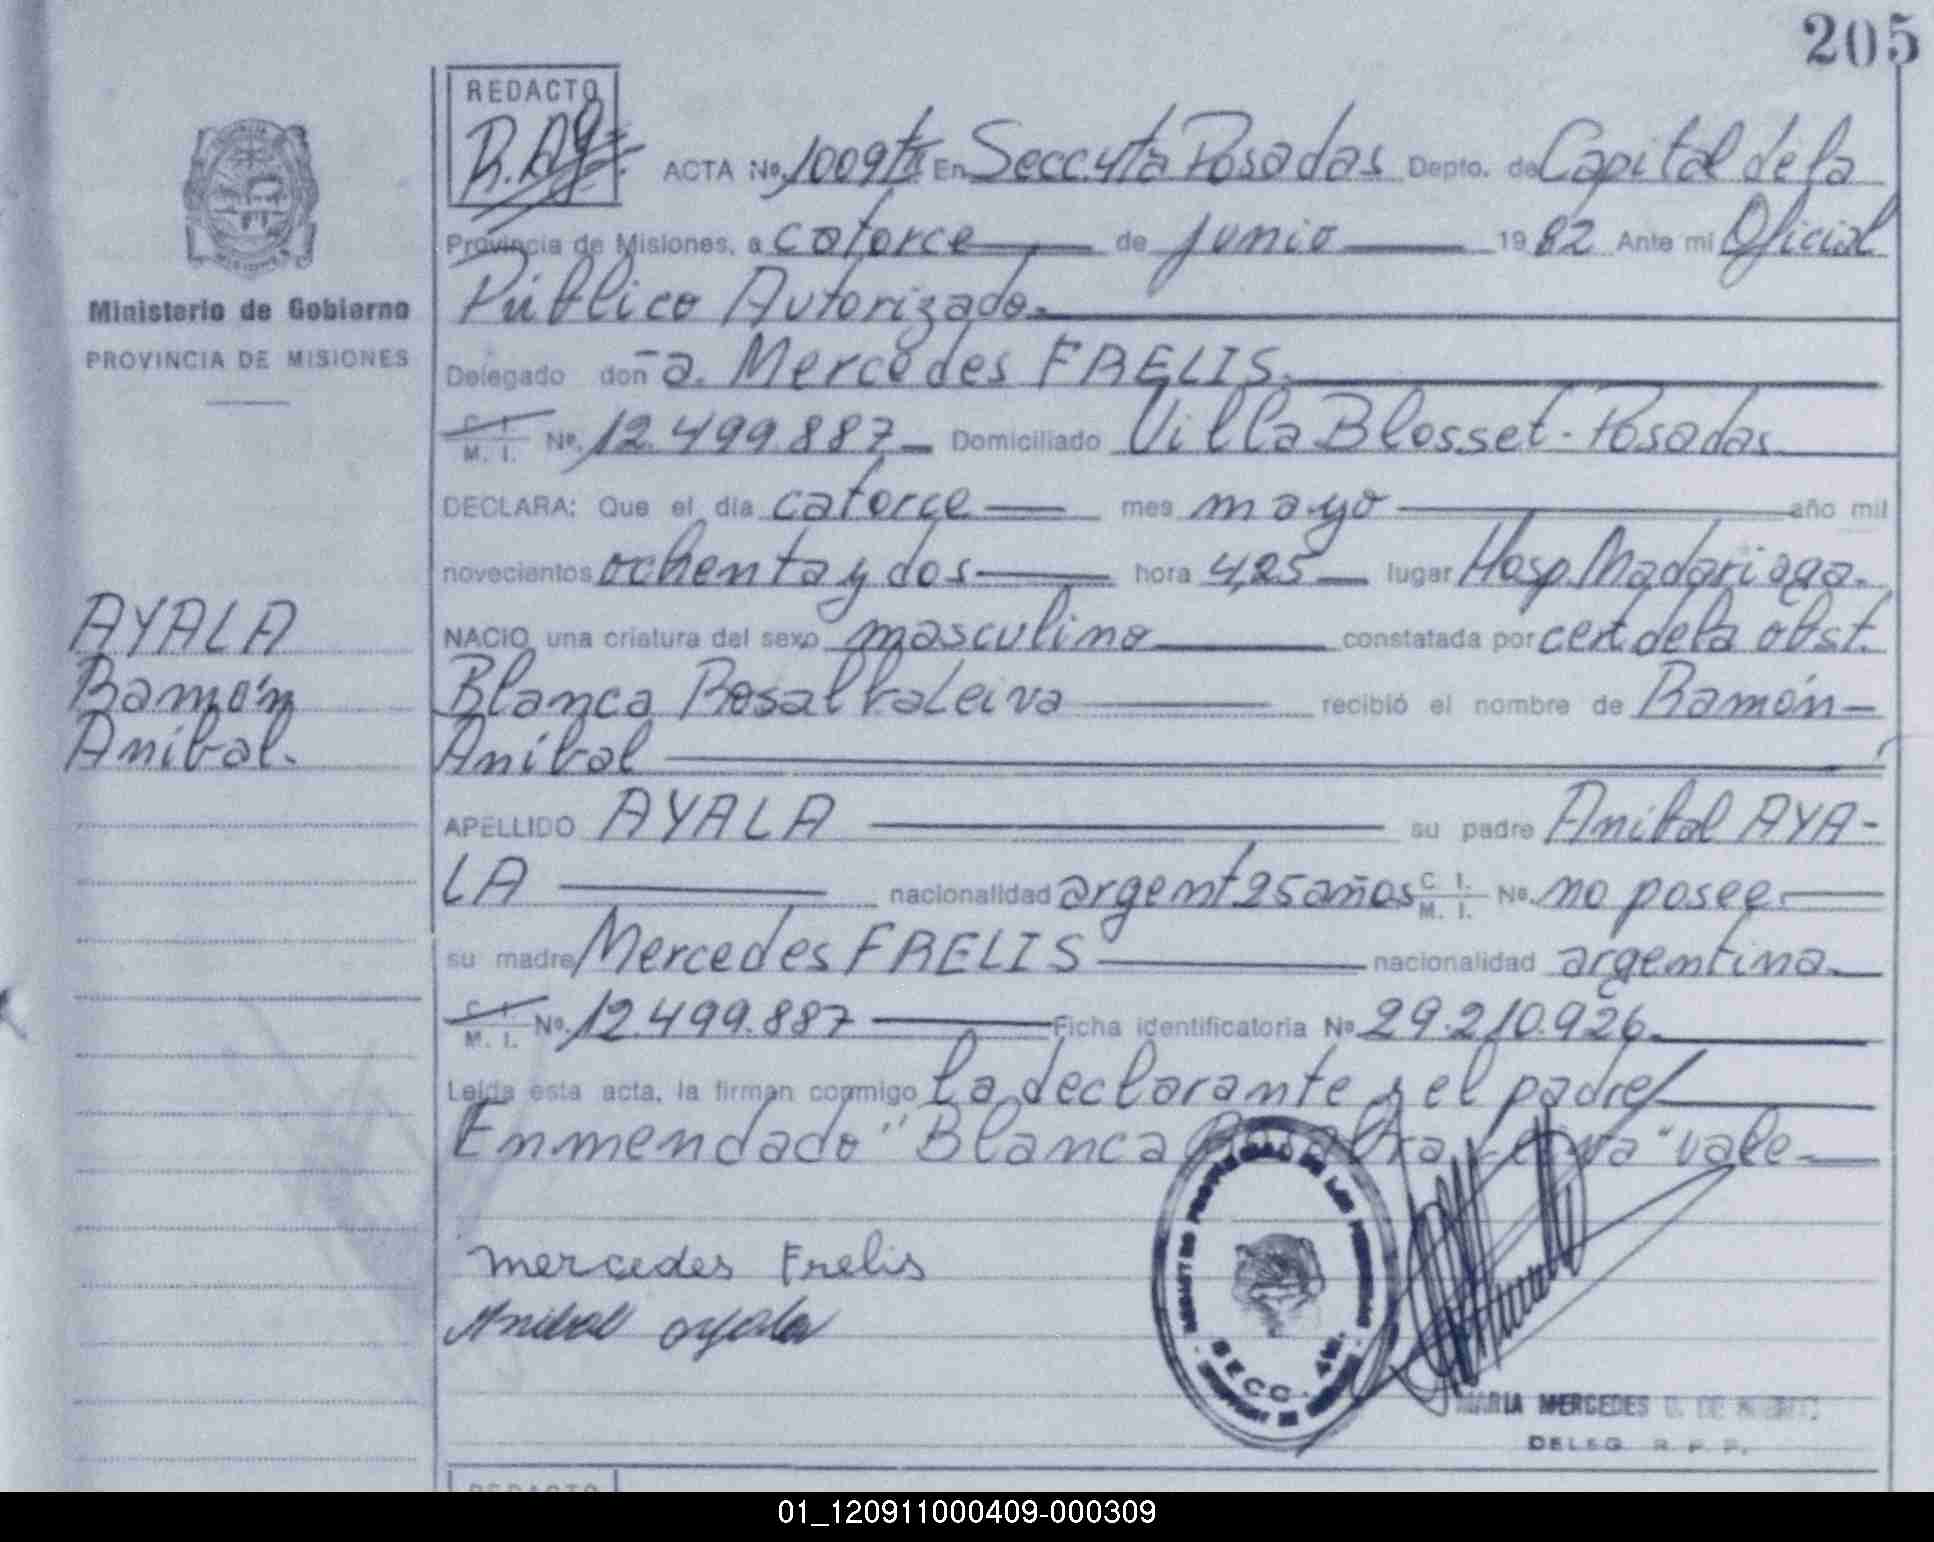 205
REDACTO
ACTA No. 1009 En Secc. 4ta Posadas Depto. de Capital de la
Provincia de Misiones, a catorce de junio 1982 Ante mi Oficial
Público Autorizado.
Ministerio de Gobierno
PROVINCIA DE MISIONES
Delegado don a. Mercedes FRELIS.
C. I. M. I. No. 12.499.887 Domiciliado Villa Blosset - Posadas
DECLARA: Que el día catorce mes mayo año mil
novecientos ochenta y dos hora 4,25 lugar Hosp. Madariaga.
NACIO una criatura del sexo masculino constatada por cert. de la obst.
Blanca Rosalba Leiva recibió el nombre de Ramón
Aníbal
AYALA
Ramón
Aníbal.
APELLIDO AYALA su padre Anibal AYA-
LA nacionalidad argent. 25 años C. I. M. I. No. no posee.
su madre Mercedes FRELIS nacionalidad argentina.
C. I. M. I. No. 12.499.887 Ficha identificatoria No 29.210.926.
Leída esta acta, la firman conmigo la declarante y el padre/
Enmendado "Blanca Rosalba Leiva" vale
mercedes Frelis
Anibal ayala
SECC. 4ta.
MARIA MERCEDES
DELEG. R. P. P.
REDACTO
01_120911000409-000309